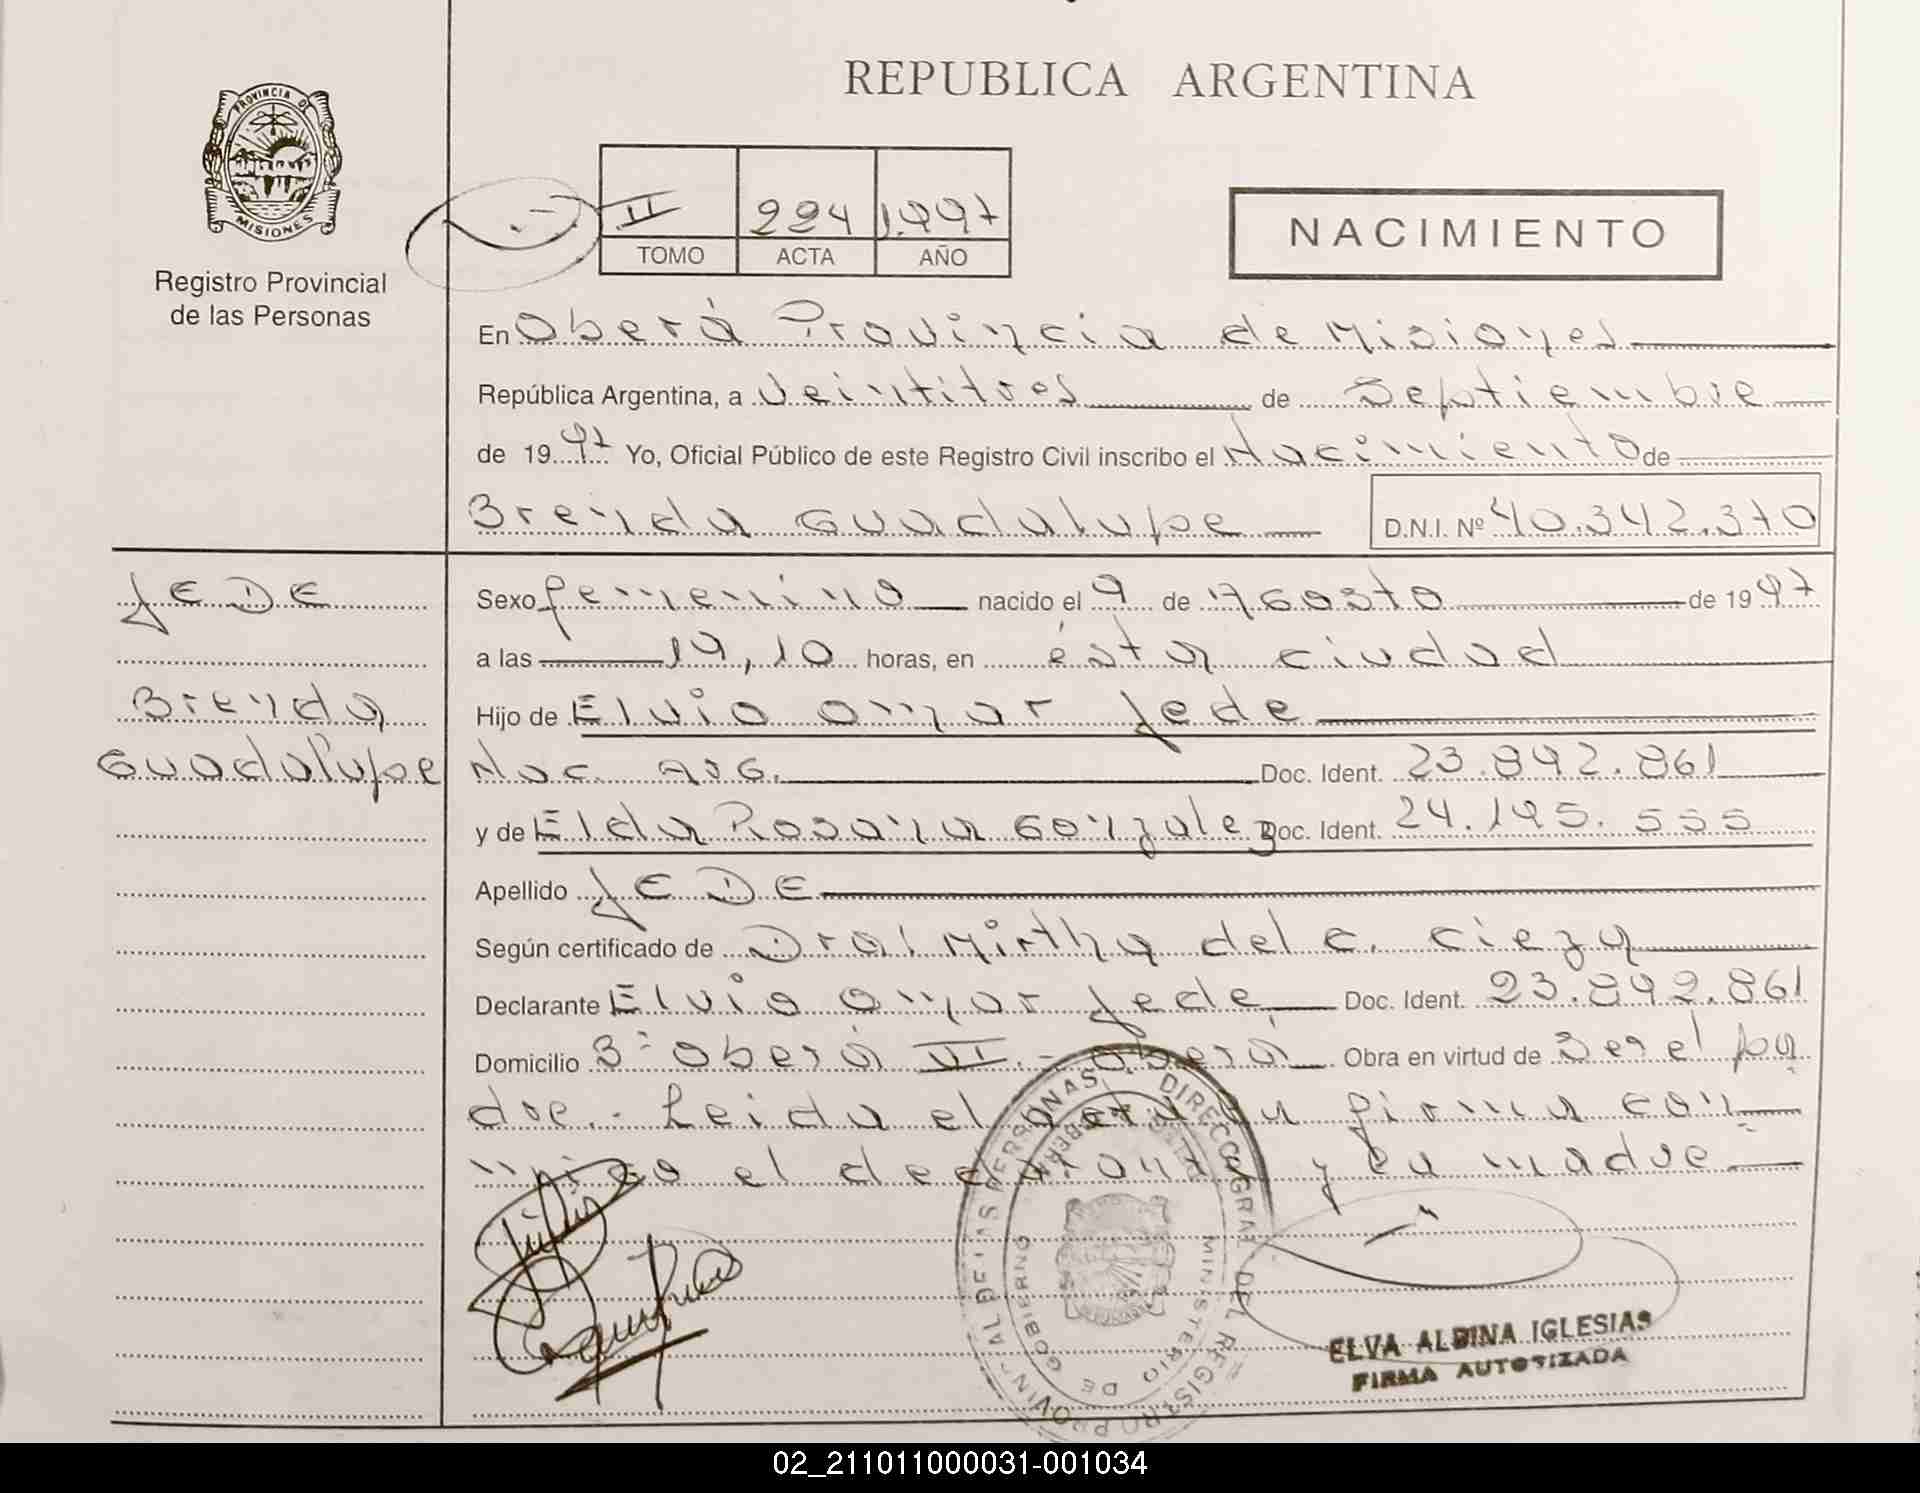 REPUBLICA ARGENTINA
PROVINCIA DE
MISIONES
Registro Provincial
de las Personas
II 224 1.997
TOMO ACTA AÑO
NACIMIENTO
En Oberá Provincia de Misiones
República Argentina, a Veintitres de Septiembre
de 1997 Yo, Oficial Público de este Registro Civil inscribo el Nacimiento de
Brenda Guadalupe D.N.I. Nº 40.342.370
JEDE
Brenda
Guadalupe
Sexo femenino nacido el 9 de Agosto de 1997
a las 19,10 horas, en ésta ciudad
Hijo de Elvio Omar Jede
Nac. Arg. Doc. Ident. 23.892.861
y de Elda Rosana Gonzalez Doc. Ident. 24.195.555
Apellido JEDE
Según certificado de Dra. Mirtha del C. Cieza
Declarante Elvio Omar Jede Doc. Ident. 23.892.861
Domicilio Bº Oberá VI.- Oberá Obra en virtud de Ser el pa
dre.- Leida el acta la firma con
migo el declarante y su madre
DIREC. GRAL. DEL REGISTRO PROVINCIAL DE LAS PERSONAS
MINISTERIO DE GOBIERNO
ELVA ALBINA IGLESIAS
FIRMA AUTORIZADA
02_211011000031-001034